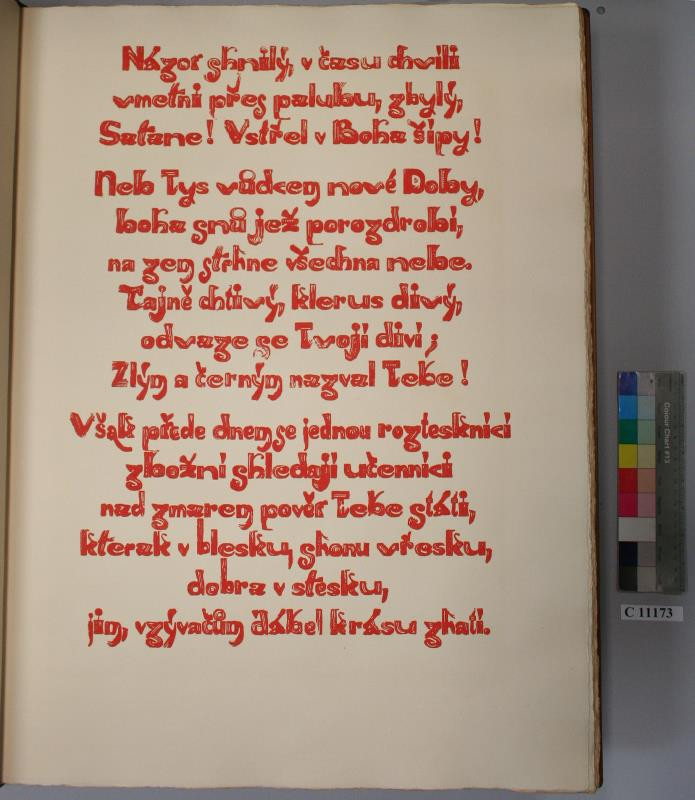 Názor shnilý, v času chvíli
vmetni přes palubu, zbylý,
Satane! Vstřel v Boha šípy!
Nebo Tys vůdcem nové Doby,
boha snů jež porozdrobí,
na zem strhne všechna nebe.
Tajně chtivý, klerus divý,
odvaze se Tvojí diví;
Zlým a černým nazval Tebe!
Však přede dnem se jednou roztesknící
zbožní shledají učenníci
nad zmarem pověr Tebe státi,
kterak v blesku, shonu vřesku,
dobra v stesku,
jim, vzývačům ďábel krásu zhatí.
Colour Chart #13
C 11173